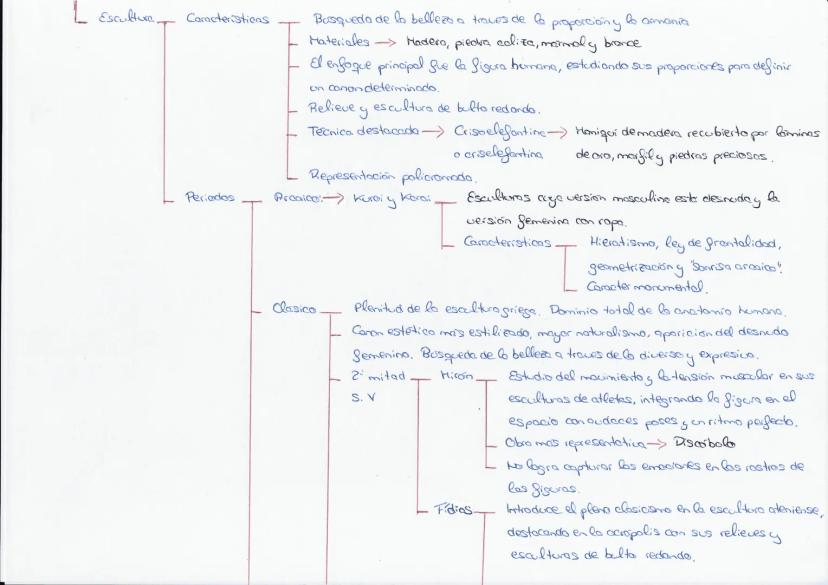 Escultura Características Búsqueda de la belleza a través de la proporción y la armonía
Materiales → Madera, piedra caliza, mármol y bronce
El enfoque principal fue la figura humana, estudiando sus proporciones para definir
un canon determinado.
Relieve y escultura de bulto redondo.
Técnica destacada → Crisoelefantina → Maniquí de madera recubierto por láminas
o criselefantina de oro, marfil y piedras preciosas.
Representación policromada.
Periodos Arcaico: → Kuroi y Korai Esculturas cuya versión masculina está desnuda y la
versión femenina con ropa.
Características Hieratismo, ley de frontalidad,
geometrización y "sonrisa arcaica".
Carácter monumental.
Clásico Plenitud de la escultura griega. Dominio total de la anatomía humana.
Canon estético más estilizado, mayor naturalismo, aparición del desnudo
femenino. Búsqueda de la belleza a través de lo diverso y expresivo.
2ª mitad Mirón Estudio del movimiento y la tensión muscular en sus
S. V esculturas de atletas, integrando la figura en el
espacio con audaces poses y un ritmo perfecto.
Obra más representativa → Discóbolo
No logra capturar las emociones en los rostros de
las figuras.
Fidias Introduce el pleno clasicismo en la escultura ateniense,
destacando en la acrópolis con sus relieves y
esculturas de bulto redondo.